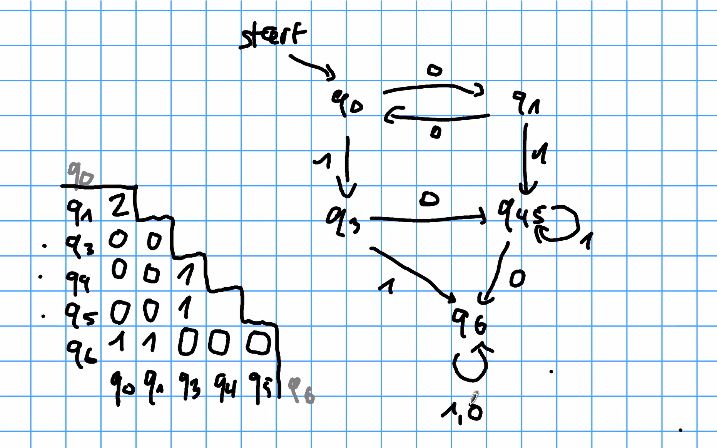 start
0
q0 q1
0
1 1
0
q3 q45
1
1 0
q6
1,0
q0
q1 2
q3 0 0
q4 0 0 1
q5 0 0 1
q6 1 1 0 0 0
q0 q1 q3 q4 q5 q6